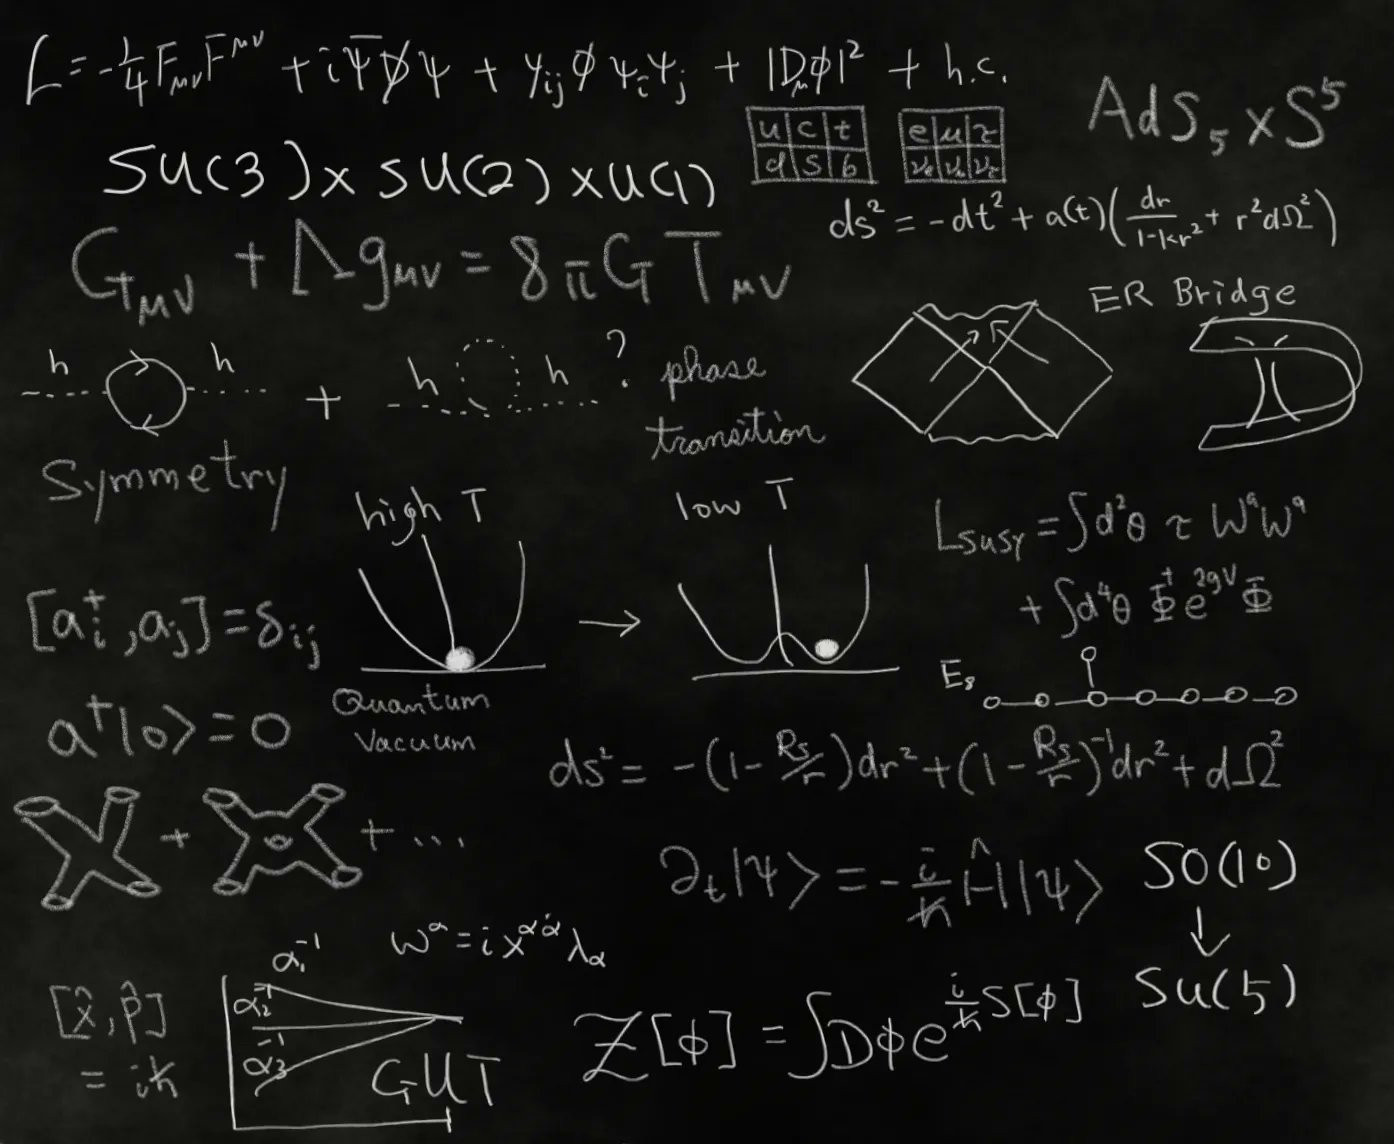 L = -1/4 F_μν F^μν + i Ψ̄ D̸ ψ + y_ij ϕ ψ_i ψ_j + |D_μ ϕ|² + h.c.
u c t
d s b
e μ τ
ν_e ν_μ ν_τ
AdS₅ x S⁵
SU(3) x SU(2) x U(1)
ds² = -dt² + a(t)(dr/1-kr² + r²dΩ²)
G_μν + Λg_μν = 8πG T_μν
ER Bridge
h h + h h ?
phase
transition
Symmetry
high T
low T
L_SUSY = ∫d²θ τ WᵃWᵃ
+ ∫d⁴θ Φ† e^2gV Φ
[a†_i, a_j] = δ_ij
E₈
a†|0⟩ = 0
Quantum
Vacuum
ds² = -(1 - Rs/r)dr² + (1 - Rs/r)⁻¹dr² + dΩ²
+ + ...
∂_t|ψ⟩ = -i/ħ Ĥ|ψ⟩
SO(10)
↓
SU(5)
W^α = i x^αα̇ λ_α
α₁⁻¹
α₂⁻¹
α₃⁻¹
GUT
[x̂, p̂]
= iħ
Z[ϕ] = ∫Dϕ e^i/ħ S[ϕ]